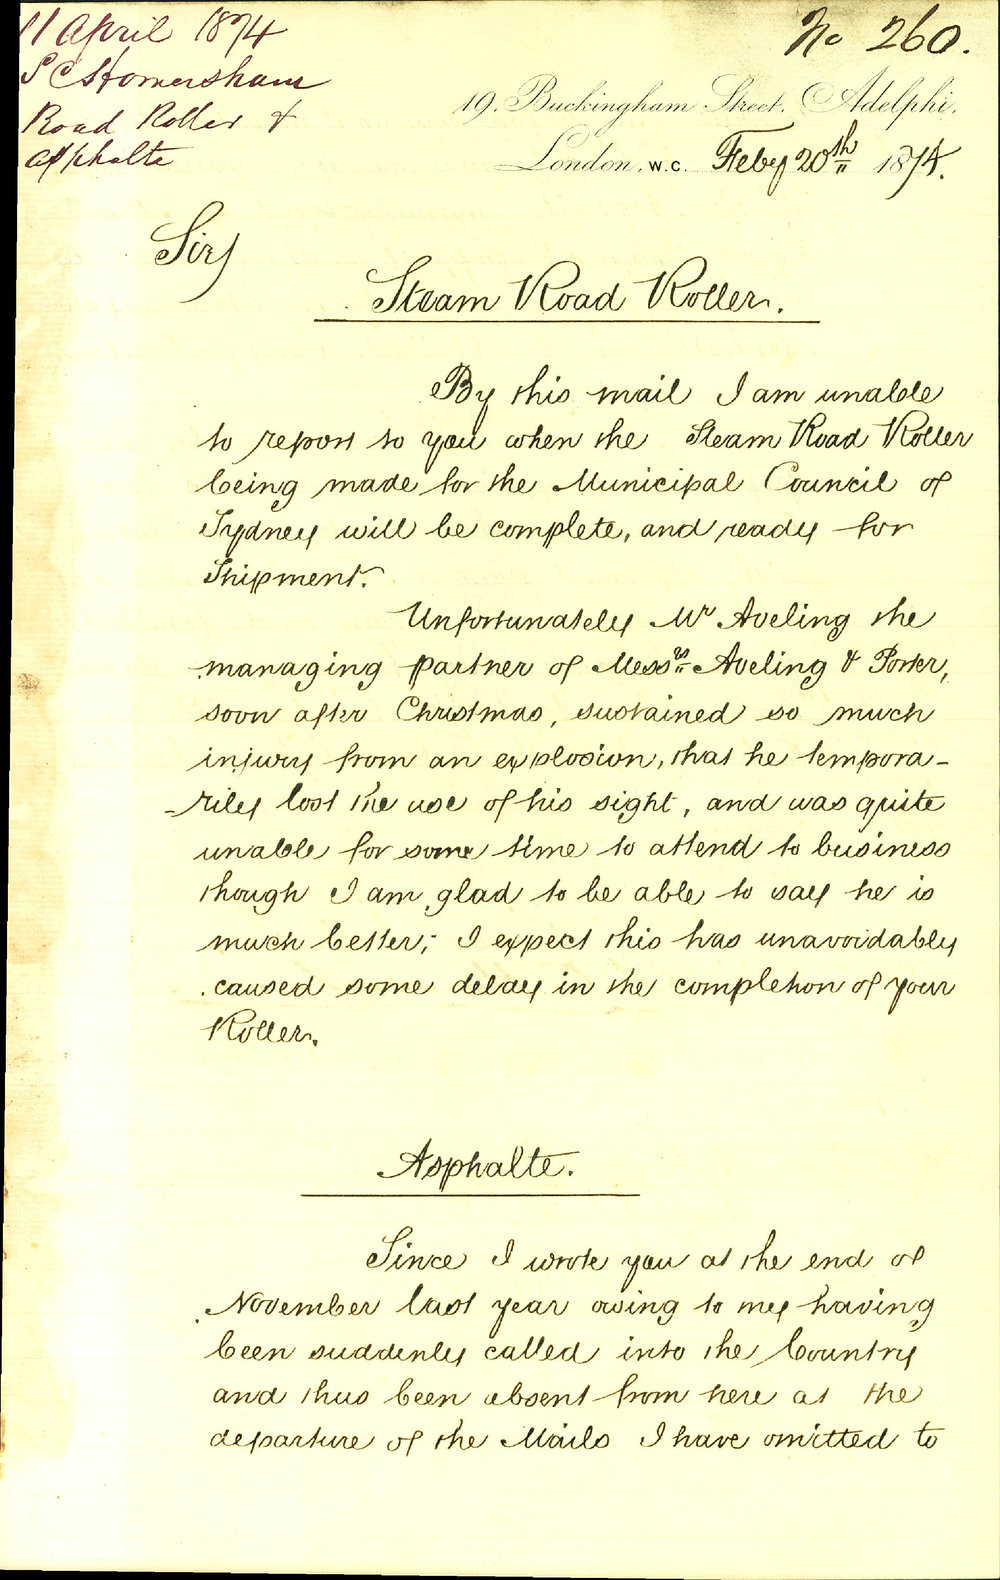 11 April 1874
S C Homersham
Road Roller &
Asphalte
No 260.
19. Buckingham Street. Adelphi.
London. W.C. Feby 20th 1874.
Sir/
Steam Road Roller.
By this mail I am unable
to report to you when the Steam Road Roller
being made for the Municipal Council of
Sydney will be complete, and ready for
Shipment.
Unfortunately Mr Aveling the
managing partner of Messrs Aveling & Porter,
soon after Christmas, sustained so much
injury from an explosion, that he tempora-
-rily lost the use of his sight, and was quite
unable for some time to attend to business
though I am glad to be able to say he is
much better; I expect this has unavoidably
caused some delay in the completion of your
Roller.
Asphalte.
Since I wrote you at the end of
November last year owing to my having
been suddenly called into the Country
and thus been absent from here at the
departure of the Mails I have omitted to